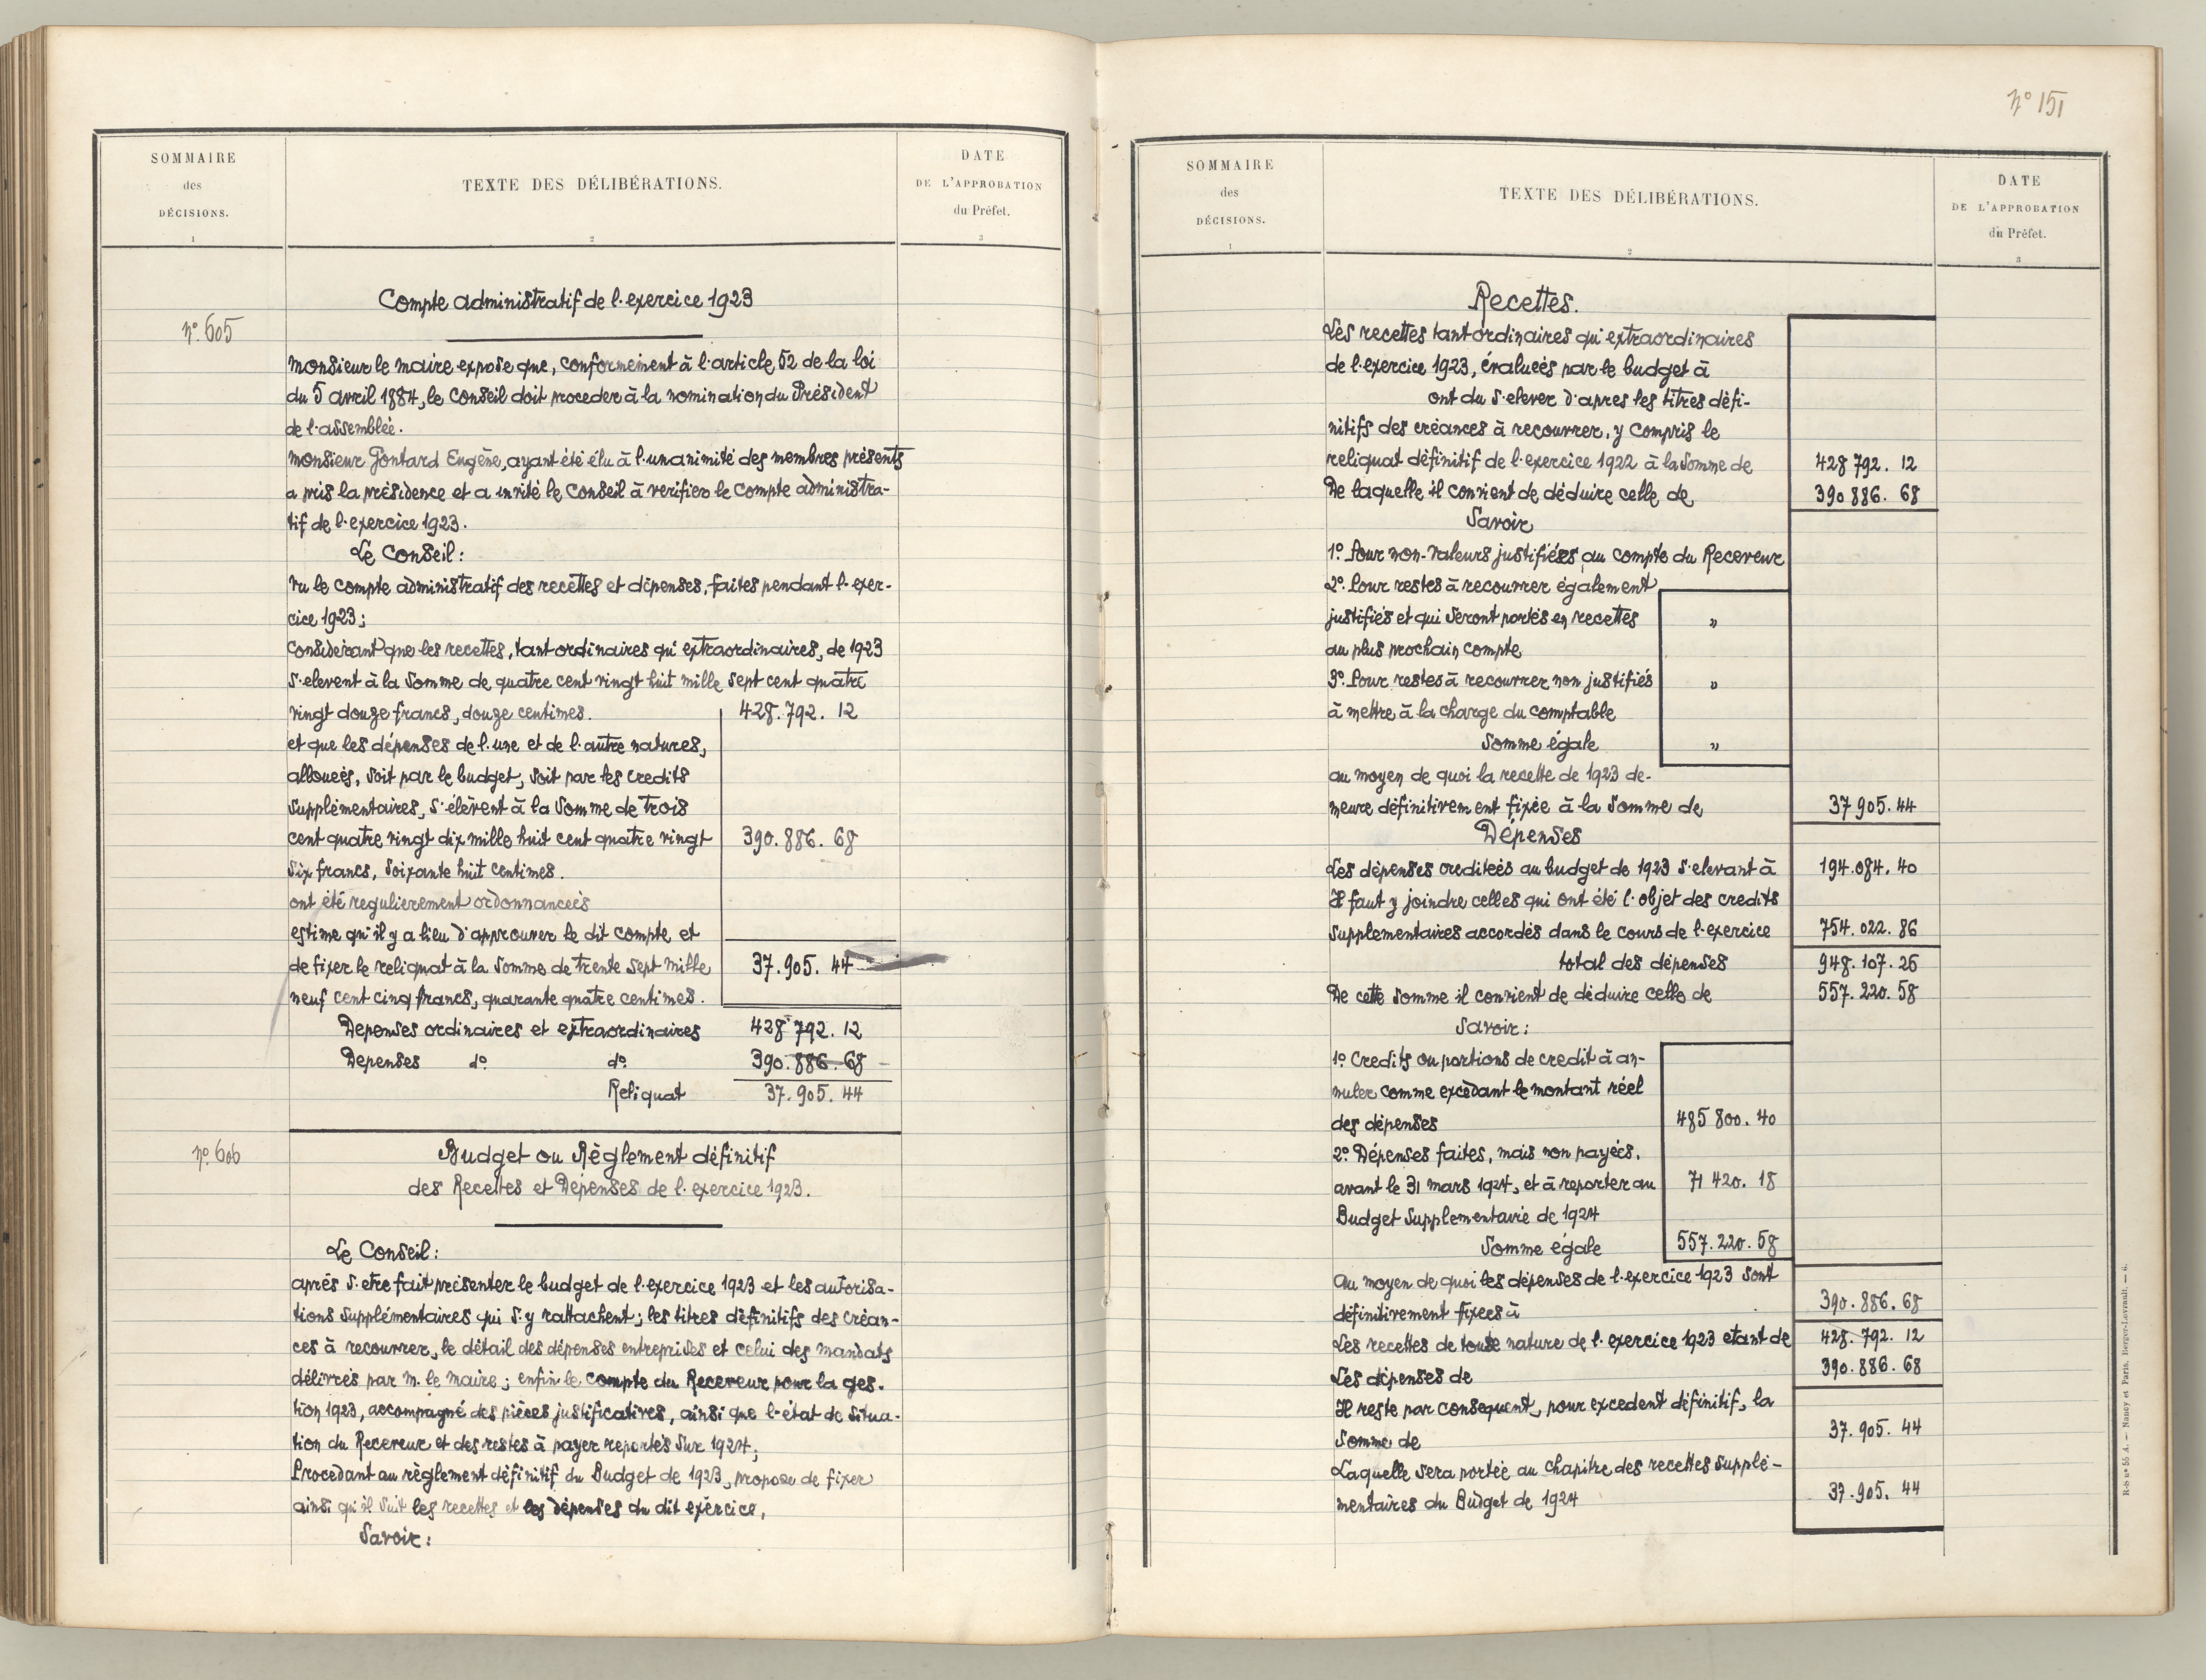 SOMMAIRE
des
DÉCISIONS.
1
TEXTE DES DÉLIBÉRATIONS.
2
DATE
DE L'APPROBATION
du Préfet.
3
Compte administratif de l'exercice 1923
n° 605
Monsieur le maire expose que, conformement à l'article 52 de la loi
du 5 avril 1884, le Conseil doit proceder à la nomination du Président
de l'assemblée.
Monsieur Gontard Eugène, ayant été élu à l'unanimité des membres présents
a pris la présidence et a invité le Conseil à verifier le Compte administra-
tif de l'exercice 1923.
Le Conseil:
Vu le compte administratif des recettes et dépenses, faites pendant l'exer-
cice 1923;
Considerant que les recettes, tant ordinaires qu'extraordinaires, de 1923
s'elevent à la Somme de quatre cent vingt huit mille sept cent quatre
vingt douze francs, douze centimes. 428.792. 12
et que les dépenses de l'une et de l'autre natures,
allouées, soit par le budget, soit par les credits
supplémentaires, s'élèvent à la Somme de trois
cent quatre vingt dix mille huit cent quatre vingt 390.886. 68
six francs, soixante huit centimes.
ont été regulierement ordonnancées
estime qu'il y a lieu d'approuver le dit compte et
de fixer le reliquat à la Somme de trente sept mille 37.905. 44
neuf cent cinq francs, quarante quatre centimes.
Depenses ordinaires et extraordinaires 428 792. 12
Depenses d° d° 390.886.68
Reliquat 37.905. 44
n° 606
Budget ou Règlement définitif
des Recettes et Dépenses de l'exercice 1923.
Le Conseil:
après s'etre fait présenter le budget de l'exercice 1923 et les autorisa-
tions supplémentaires qui s'y rattachent; les titres définitifs des créan-
ces à recouvrer, le détail des dépenses entreprises et celui des mandats
délivrés par M. le Maire; enfin le compte du Receveur pour la ges-
tion 1923, accompagné des pièces justificatives, ainsi que l'état de situa-
tion du Receveur et des restes à payer reportés sur 1924;
Procedant au règlement définitif du Budget de 1923, propose de fixer
ainsi qu'il suit les recettes et les dépenses du dit exércice,
Savoir:
N° 151
SOMMAIRE
des
DÉCISIONS.
1
TEXTE DES DÉLIBÉRATIONS.
2
DATE
DE L'APPROBATION
du Préfet.
3
Recettes.
Les recettes tant ordinaires qu'extraordinaires
de l'exercice 1923, évaluées par le budget à
ont du s'elever d'apres les titres défi-
nitifs des créances à recouvrer, y compris le
reliquat définitif de l'exercice 1922 à la Somme de 428 792. 12
De laquelle il convient de déduire celle de 390 886. 68
Savoir
1° Pour non-valeurs justifiées au compte du Receveur
2° Pour restes à recouvrer également
justifiés et qui seront portés en recettes "
au plus prochain compte
3° Pour restes à recouvrer non justifiés "
à mettre à la charge du comptable
Somme égale "
au moyen de quoi la recette de 1923 de-
meure définitivement fixée à la Somme de 37 905. 44
Dépenses
Les dépenses creditées au budget de 1923 s'elevant à 194.084. 40
Il faut y joindre celles qui ont été l'objet des credits
supplementaires accordés dans le cours de l'exercice 754. 022. 86
total des dépenses 948. 107. 26
De cette somme il convient de déduire celle de 557. 220. 58
Savoir:
1° Credits ou portions de credit à an-
nuler comme excédant le montant réel
des dépenses 485 800. 40
2° Dépenses faites, mais non payées,
avant le 31 mars 1924, et à reporter au 71 420. 18
Budget Supplementavie de 1924
Somme égale 557. 220. 58
au moyen de quoi les dépenses de l'exercice 1923 sont
définitivement fixées à 390. 886. 68
Les recettes de toute nature de l'exercice 1923 etant de 428. 792. 12
Les dépenses de 390. 886. 68
Il reste par consequent, pour excedent définitif, la
Somme de 37. 905. 44
Laquelle sera portée au chapitre des recettes supplé-
mentaires du Budget de 1924 37.905. 44
R-S n° 55 A. — Nancy et Paris. Berger-Levrault. — 6.